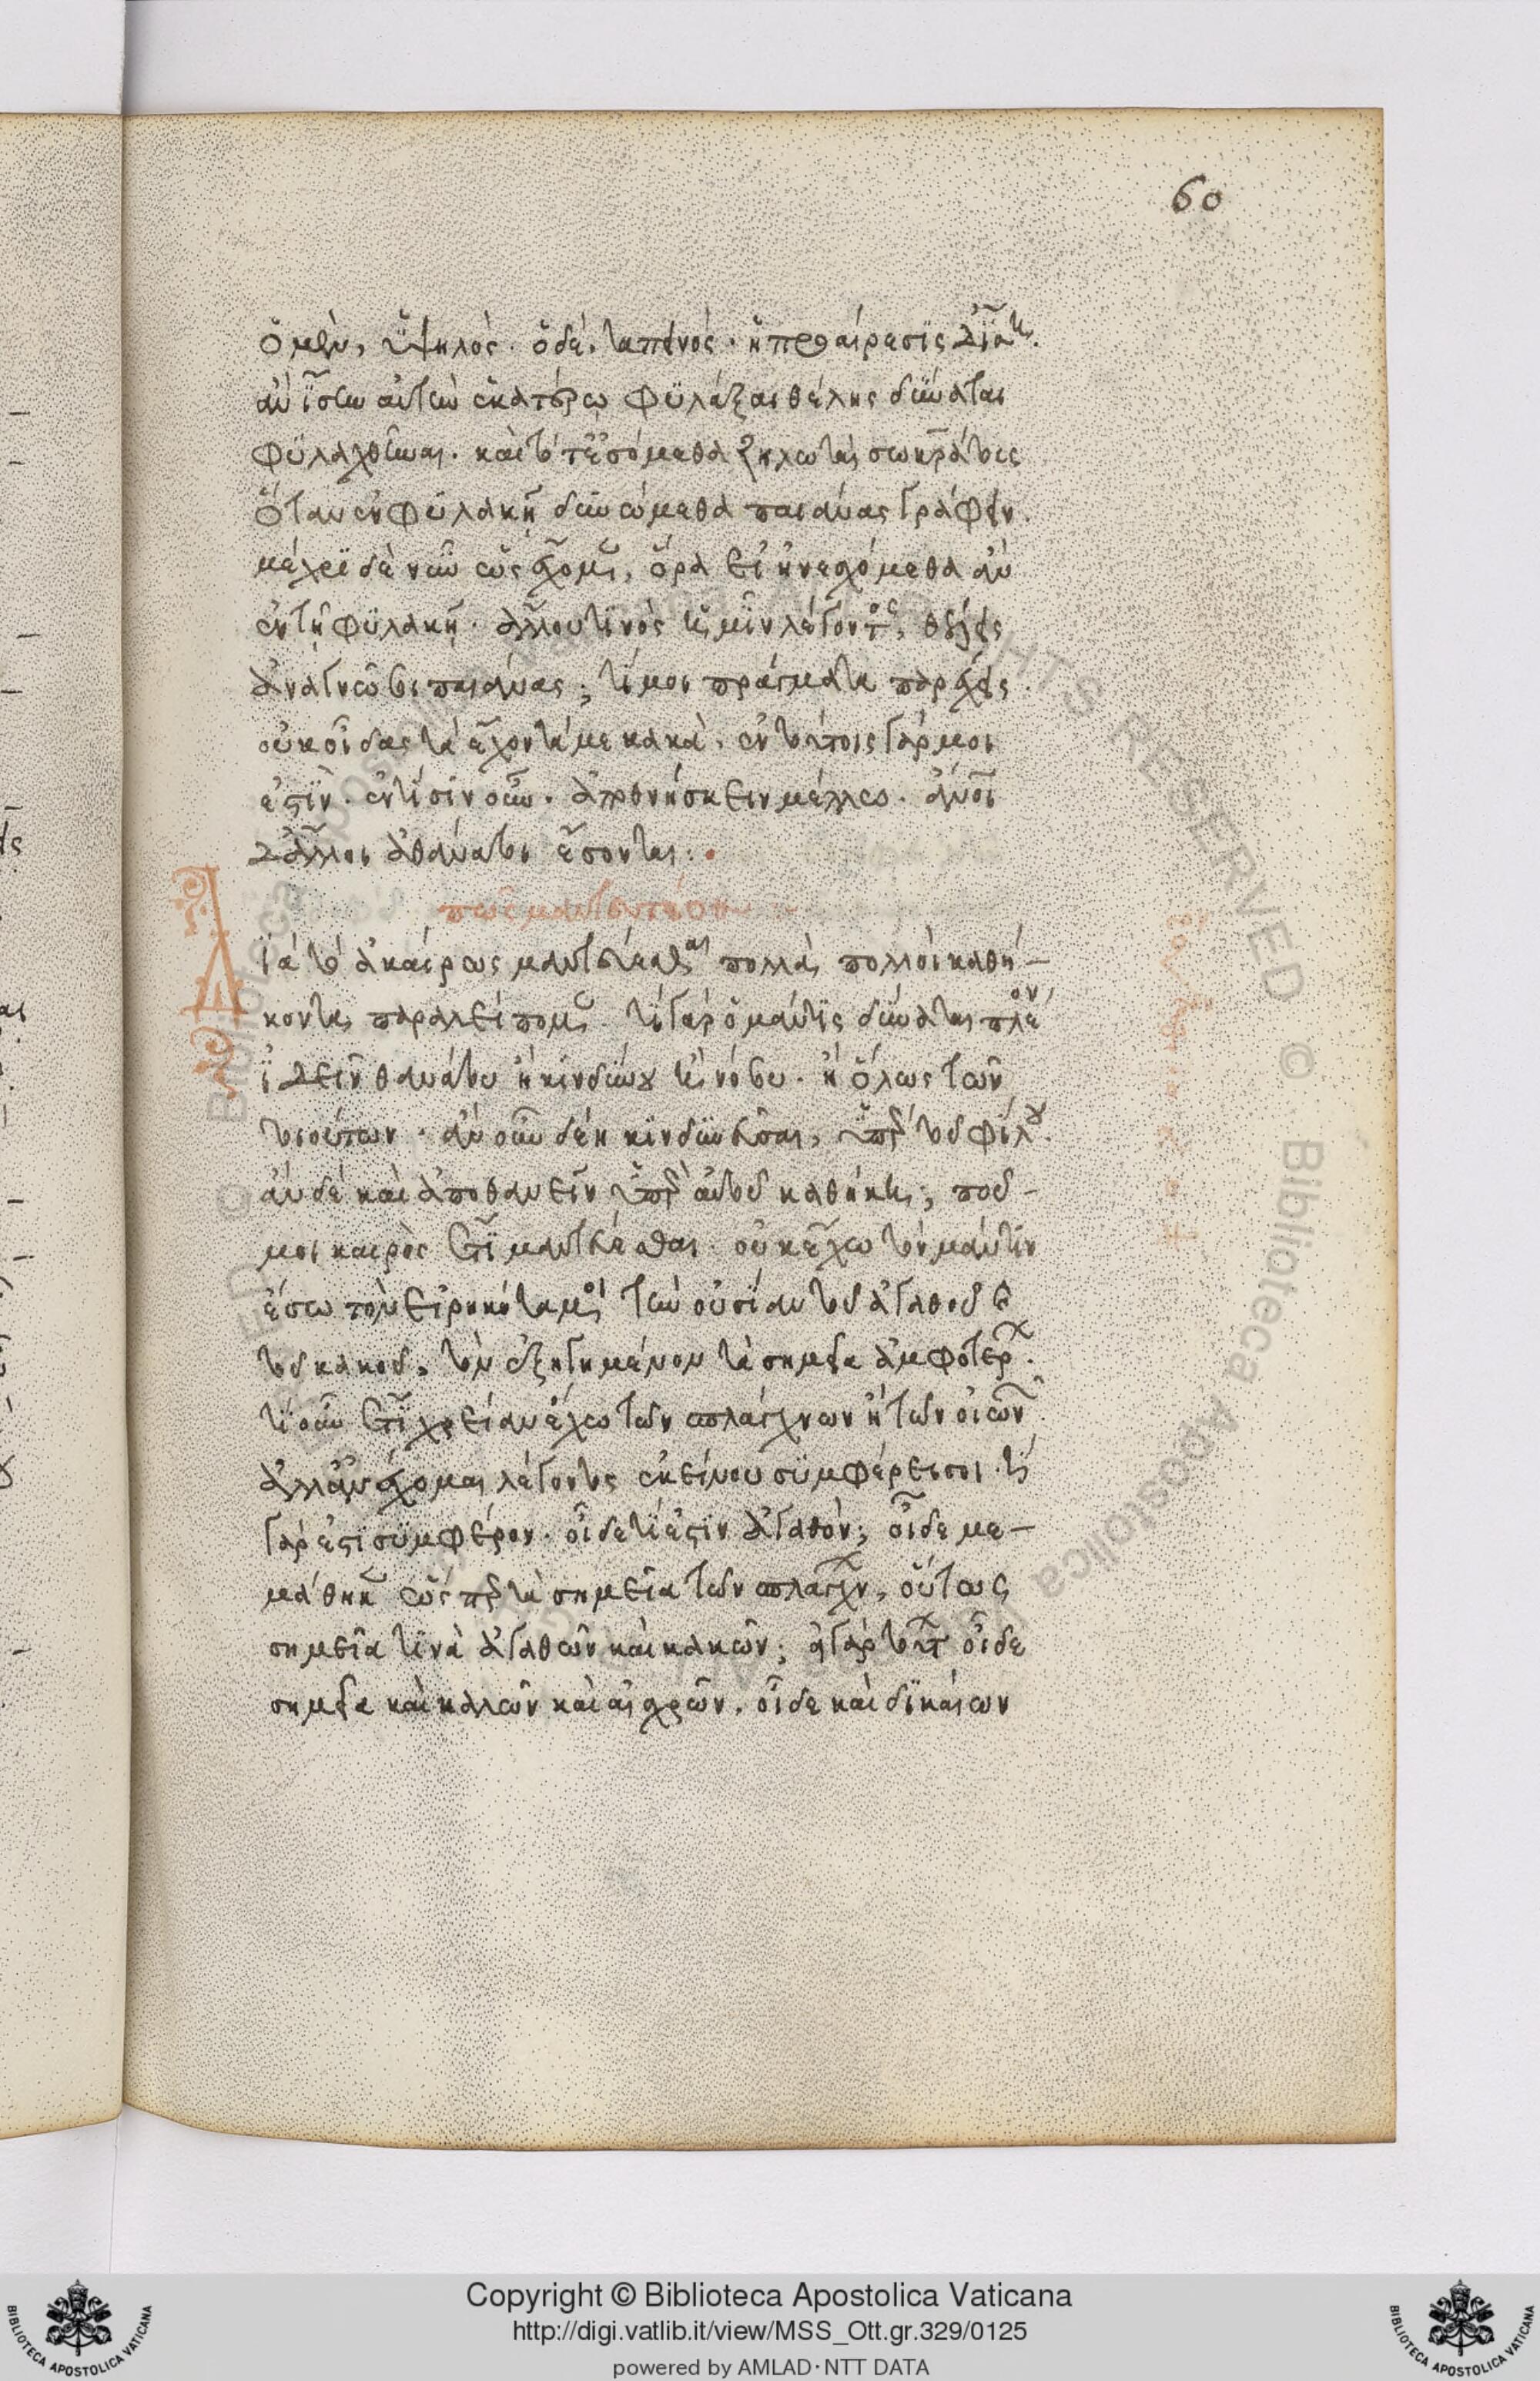 60
ὁ μὲν, ὑψηλός· ὁ δὲ, ταπεινός· ἡ προαίρεσις δὲ ἴση.
ἂν ἴσην αὐτὴν ἑκατέρῳ φυλάξαι θέλῃς δύναται
φυλαχθῆναι. καὶ τότ' ἐσόμεθα ζηλωταὶ σωκράτους
ὅταν ἐν φυλακῇ δυνώμεθα παιᾶνας γράφειν.
μέχρι δὲ νῦν ὡς ἔχομεν, ὅρα εἰ ἠνεσχόμεθα ἂν
ἐν τῇ φυλακῇ· ἄλλου τινὸς ἡμῖν λέγοντος, θέλεις
ἀναγνῶ σοι παιᾶνας; τί μοι πράγματα παρέχεις.
οὐκ οἶδας τὰ ἔχοντά με κακά, ἐν τούτοις γάρ μοι
ἐστίν· ἐν τίσιν οὖν· ἀποθνήσκειν μέλλω. ἄνοι
δ' ἄλλοι ἀθάνατοι ἔσονται:.
πῶς μαντευτέον
Διὰ τὸ ἀκαίρως μαντεύεσθαι πολλὰ, πολλοὶ καθή-
κοντα παραλείπομεν. τί γὰρ ὁ μάντις δύναται πλέον
ἰδεῖν θανάτου ἢ κινδύνου ἢ νόσου. ἢ ὅλως τῶν
τοιούτων. ἂν οὖν δέῃ κινδυνεῦσαι, ὑπὲρ τοῦ φίλου.
ἂν δὲ καὶ ἀποθανεῖν ὑπὲρ αὐτοῦ καθήκει; ποῦ
μοι καιρὸς ἔτι μαντεύεσθαι. οὐκ ἔχω τὸν μάντιν
ἔσω τὸν εἰρηκότα μοι τὴν οὐσίαν τοῦ ἀγαθοῦ καὶ
τοῦ κακοῦ, τὸν ἐξηγημένον τὰ σημεῖα ἀμφοτέρων.
τί οὖν ἔτι χρείαν ἔχω τῶν σπλάγχνων ἢ τῶν οἰωνῶν.
ἀλλ' ἀνέχομαι λέγοντος ἐκείνου συμφέρει σοι. τί
γάρ ἐστι συμφέρον. οἶδε τί ἐστιν ἀγαθόν; οἶδε με-
μάθηκεν ὥσπερ τὰ σημεῖα τῶν σπλάγχνων, οὕτως
σημεῖα τινὰ ἀγαθῶν καὶ κακῶν; εἰ γὰρ τούτων οἶδε
σημεῖα καὶ καλῶν καὶ αἰσχρῶν, οἶδε καὶ δικαίων
Copyright © Biblioteca Apostolica Vaticana
http://digi.vatlib.it/view/MSS_Ott.gr.329/0125
powered by AMLAD·NTT DATA